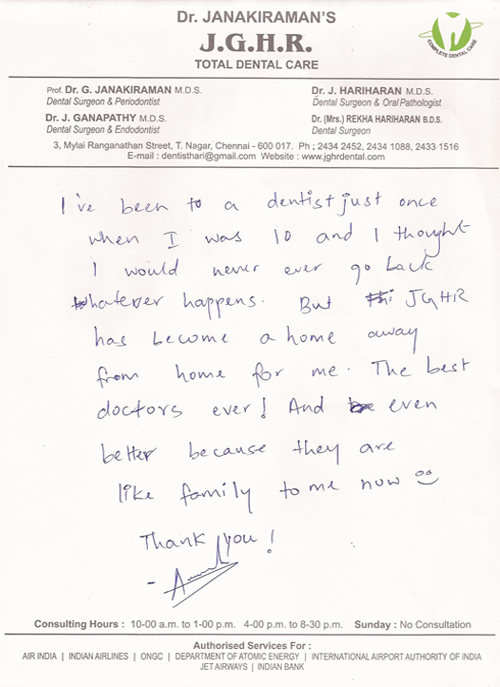 Dr. JANAKIRAMAN'S
J.G.H.R.
TOTAL DENTAL CARE
COMPLETE DENTAL CARE
Prof. Dr. G. JANAKIRAMAN M.D.S.
Dental Surgeon & Periodontist
Dr. J. HARIHARAN M.D.S.
Dental Surgeon & Oral Pathologist
Dr. J. GANAPATHY M.D.S.
Dental Surgeon & Endodontist
Dr. (Mrs.) REKHA HARIHARAN B.D.S.
Dental Surgeon
3, Mylai Ranganathan Street, T. Nagar, Chennai - 600 017. Ph ; 2434 2452, 2434 1088, 2433 1516
E-mail : dentisthari@gmail.com Website : www.jghrdental.com
I've been to a dentist just once
when I was 10 and I thought
I would never ever go back
whatever happens. But JGHR
has become a home away
from home for me. The best
doctors ever! And even
better because they are
like family to me now
Thank you!
Consulting Hours : 10-00 a.m. to 1-00 p.m. 4-00 p.m. to 8-30 p.m. Sunday : No Consultation
Authorised Services For :
AIR INDIA | INDIAN AIRLINES | ONGC | DEPARTMENT OF ATOMIC ENERGY | INTERNATIONAL AIRPORT AUTHORITY OF INDIA
JET AIRWAYS | INDIAN BANK